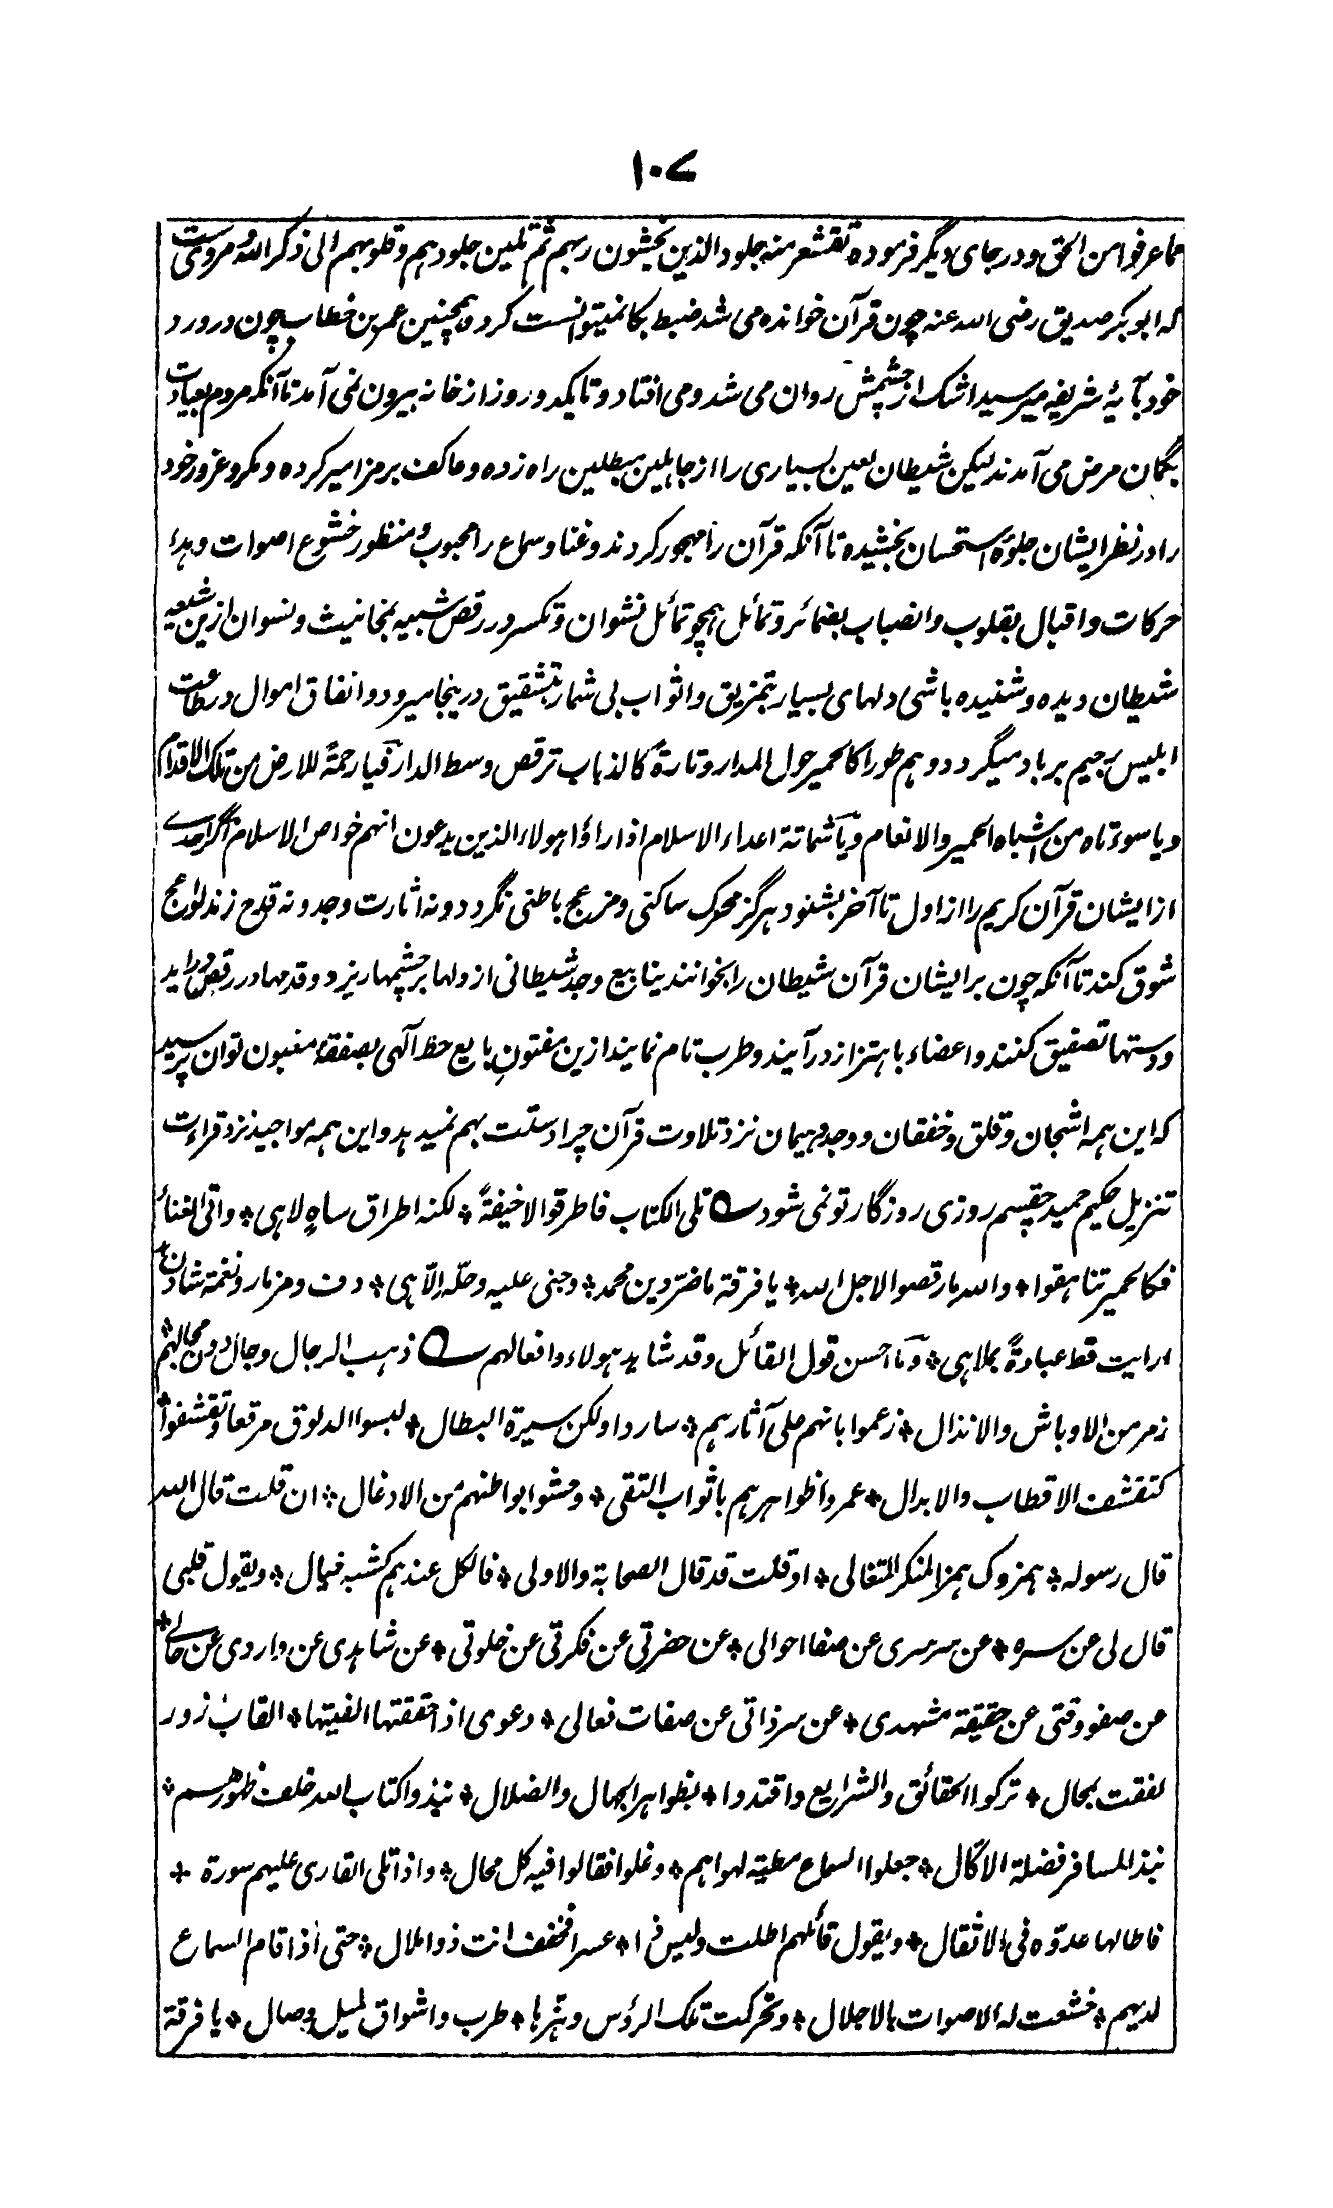 ۱۰۷
مما عرفوا من الحق و در جای دیگر فرموده تقشعر منه جلود الذین یخشون ربهم ثم تلین جلودهم و قلوبهم الی ذکر الله و مرویست
که ابو بکر صدیق رضی الله عنه چون قرآن خوانده می شد ضبط بکا نمیتوانست کرد و همچنین عمر بن خطاب چون در ورد
خود بآیهٔ شریفه میرسید اشک از چشمش روان می شد و می افتاد و تا یکدو روز از خانه بیرون نمی آمد تا آنکه مردم بعیادت
بگمان مرض می آمدند لیکن شیطان لعین بسیاری را از جاهلین مبطلین راه زده و عاکف بر مزامیر کرده و مکر و غرور خود
را در نظر ایشان جلوهٔ استحسان بخشیده تا آنکه قرآن را مهجور کردند و غنا و سماع را محبوب و منظور خشوع اصوات و هدء
حرکات و اقبال بقلوب و انصباب بضمائر و تمائل همچو تمائل نشوان و تکسر در رقص شبیه بمخانیث و نسوان ازین شیعه
شیطان دیده و شنیده باشی دلهای بسیار بتمزیق و اثواب بی شمار بتشقیق درینجا میرود و انفاق اموال در طاعت
ابلیس رجیم برباد میگردد و هم طورا کالحمیر حول المدار و تارة کالذباب ترقص وسط الدار فیا رحمة للارض من تلک الاقدام
و یا سوءتاه من اشباه الحمیر والانعام و یا شماتة اعداء الاسلام اذا راؤا هولاء الذین یدعون انهم خواص الاسلام اگر احدے
از ایشان قرآن کریم را از اول تا آخر بشنود هرگز محرک ساکنی و مزعج باطنی نگردد و نه اثارت وجد و نه قدح زند لواعج
شوق کند تا آنکه چون بر ایشان قرآن شیطان را بخوانند ینابیع وجد شیطانی از دلها بر چشمها ریزد و قدمها در رقص در اید
و دستها تصفیق کنند و اعضاء باهتزاز در آیند و طرب تام نمایند ازین مفتون بایع حظ آلهی بصفقهٔ مغبون توان پرسید
که این همه اشجان و قلق و خفقان و وجد و هیمان نزد تلاوت قرآن چرا دستت بهم نمیدهد و این همه مواجید نزد قراءت
تنزیل حکیم حمید چقسم روزی روزگار تو نمی شود ؎ تلی الکتاب فاطرقوا لا خیفةً * لکنه اطراق ساهٍ لاهی * واتی الغناء
فکالحمیر تناهقوا * والله ما رقصوا لاجل الله * یا فرقة ما ضرّ دین محمد * وجنی علیه وملّه الّا هی * دف ومزمار ونغمة شادن *
ارایت قط عبادةً بملاهی * و ما احسن قول القائل وقد شاهد هولاء وافعالهم ؎ ذهب الرجال وحال دون مجالهم *
زمر من الاوباش والانذال * زعموا بانهم علی آثارهم * ساروا ولکن سیرة البطال * لبسوا الدلوق مرقعا وتقشفوا *
کتقشف الاقطاب والابدال * عمروا ظواهرهم باثواب التقی * وحشوا بواطنهم من الادغال * ان قلت قال الله
قال رسوله * همزوک همز المنکر المتغالی * او قلت قد قال الصحابة والاولی * فالکل عندهم کشبه خیال * ویقول قلبی
قال لی عن سره * عن سر سری عن صفا احوالی * عن حضرتی عن فکرتی عن خلوتی * عن شاهدی عن واردی عن حالے *
عن صفو وقتی عن حقیقة مشهدی * عن سر ذاتی عن صفات فعالی * دعوی اذا حققتها الفیتها * القاب زور
لفقت بمحال * ترکوا الحقائق والشرایع واقتدوا * بظواهر الجهال والضلال * نبذوا کتاب الله خلف ظهورهم *
نبذ المسافر فضلة الاکال * جعلوا السماع مطیة لهواهم * وغلوا فقالوا فیه کل محال * واذا تلی القاری علیهم سورة *
فاطالها عدّوه فی الاثقال * ویقول قائلهم اطلت ولیس ذا * عسرا فخفف انت ذو املال * حتی اذا قام السماع
لدیهم * خشعت له الاصوات بالاجلال * وتحرکت تلک الرؤس وهزها * طرب واشواق لمیل وصال * یا فرقة